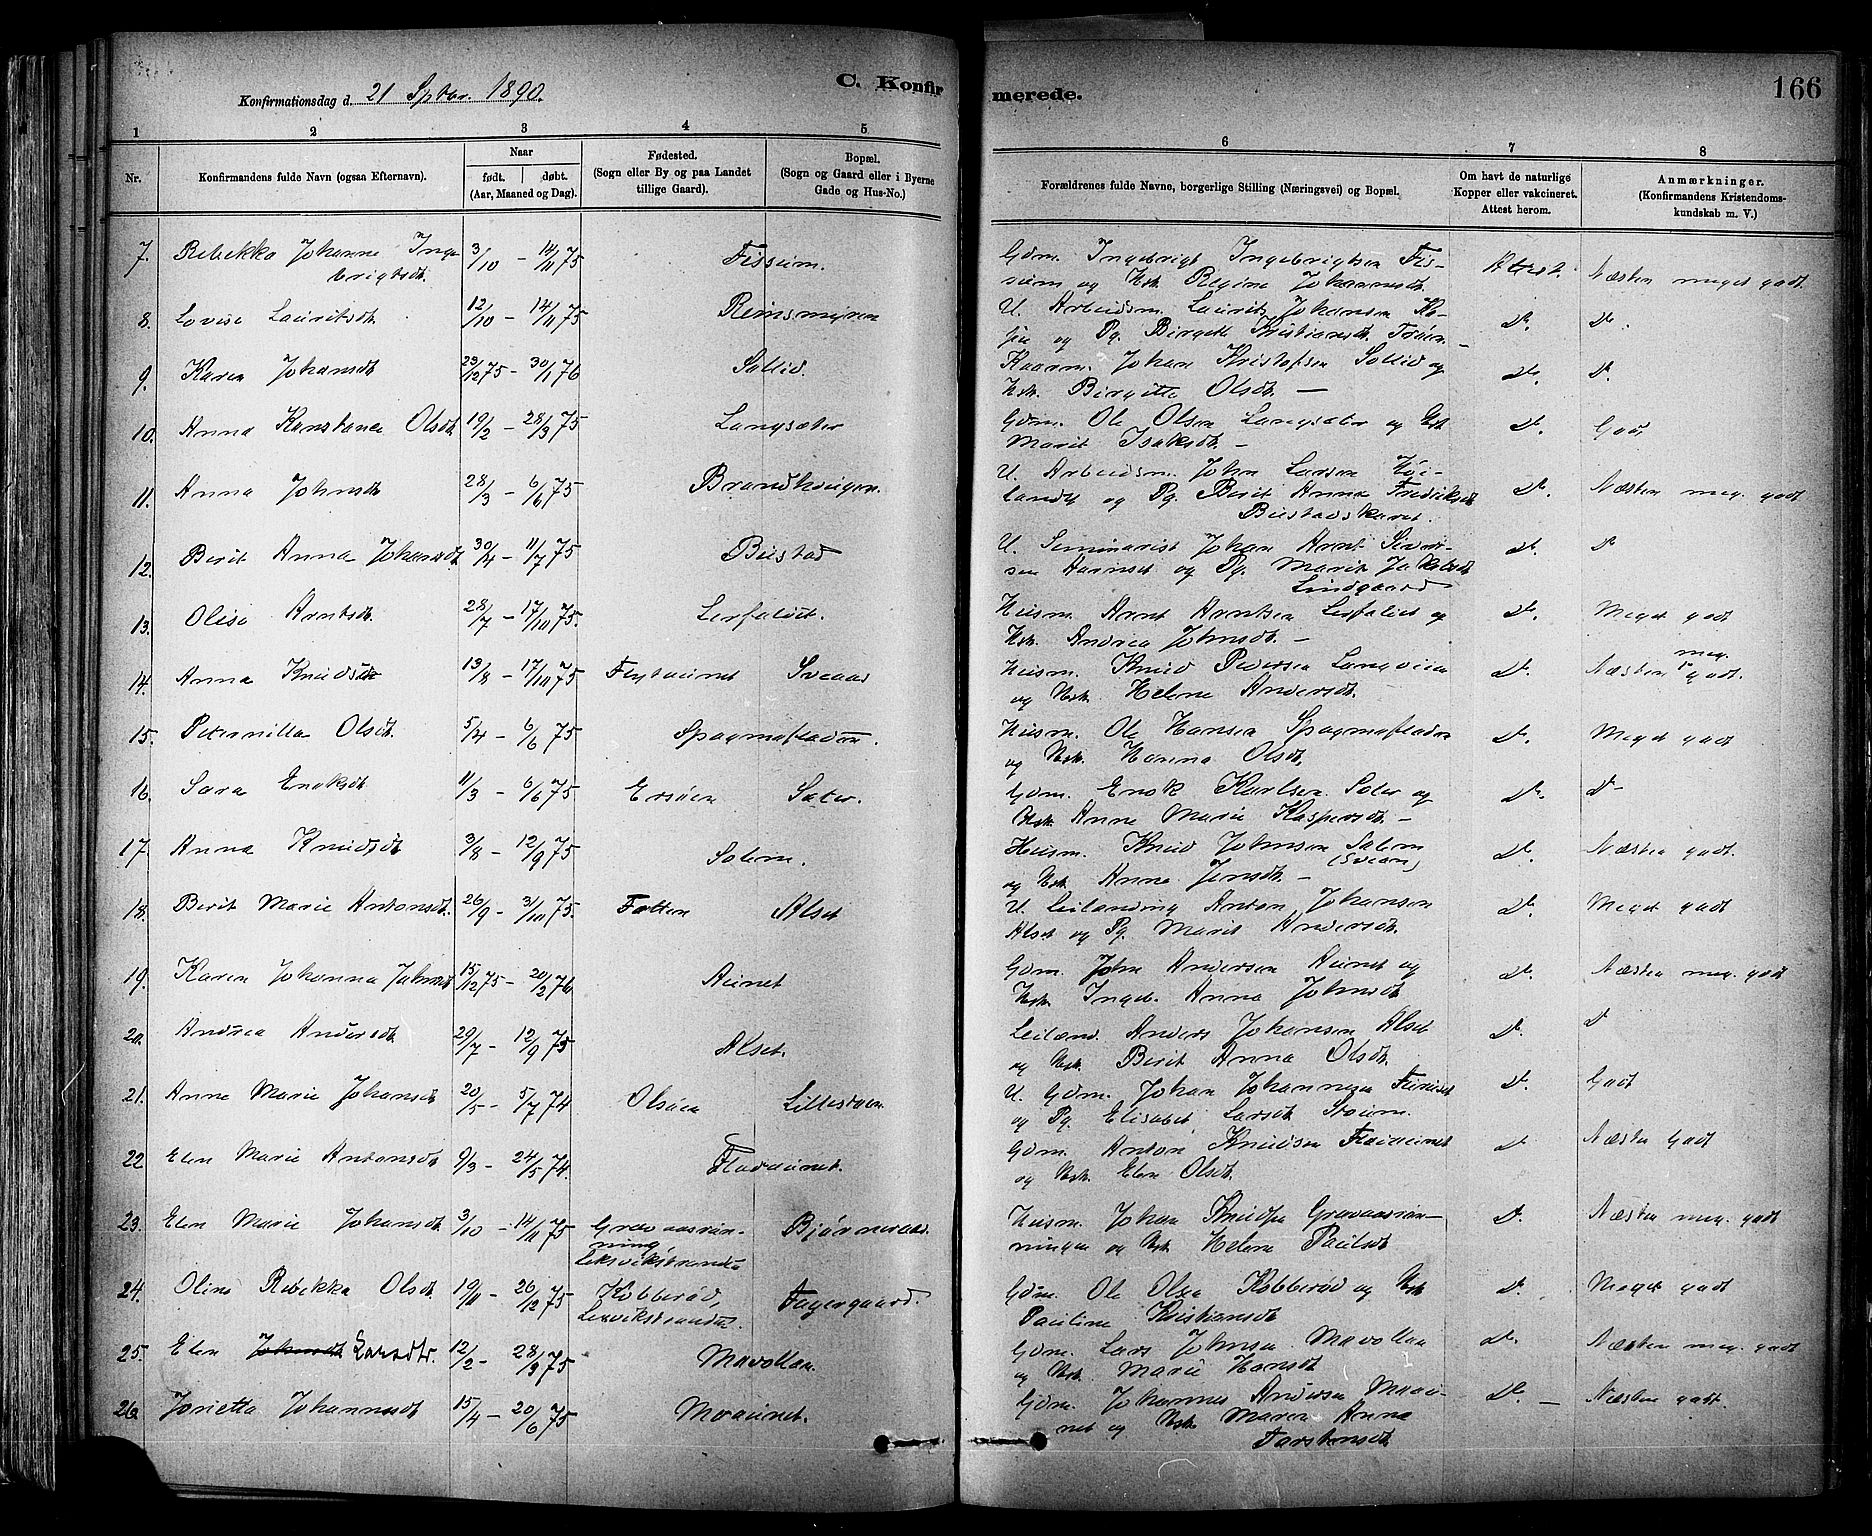 Konfirmationsdag d. 21 Sptbr. 1890.
C. Konfirmerede.
166
1 2 3 4 5 6 7 8
Nr.
Konfirmandens fulde Navn (ogsaa Efternavn).
Naar
født. døbt.
(Aar, Maaned og Dag).
Fødested.
(Sogn eller By og paa Landet
tillige Gaard).
Bopæl.
(Sogn og Gaard eller i Byerne
Gade og Hus-No.)
Forældrenes fulde Navne, borgerlige Stilling (Næringsvei) og Bopæl.
Om havt de naturlige
Kopper eller vakcineret.
Attest herom.
Anmærkninger.
(Konfirmandens Kristendoms-
kundskab m. V.)
7. Rebekka Johanne Inge- 3/10 - 14/11 75 Fisseim. Gdm. Ingebrigt Ingebrigtsen Fis- Attest. Næsten meget godt
brigtsdt. seim og Hst. Regine Johannsdt.
8. Lovise Lauritsdt. 12/10 - 14/11 75 Reinsmyren U. Arbeidsm. Laurits Johansen d. d.
og Pg. Birgitte Kristiansdt.
9. Karen Johansdt 29/12 75 - 30/1 76 Sollid. Kaarm. Johan Kristofsen Sollid og d. d.
Hst. Birgitte Olsdt. —
10. Anna Konstance Olsdt 19/2 - 28/3 75 Langsæter Gdm. Ole Olsen Langsæter og Hst d. Godt
Marit Isaksdt —
11. Anna Johnsdt 28/3 - 6/6 75 Brandhaugen. U. Arbeidsm. John Larsen Høi- d. Næsten meg. godt
landst og Pg. Berit Anna Fredriksdt
Bustadskaret.
12. Berit Anna Johansdt 30/4 - 11/7 75 Bustad U. Seminarist Johan Arnt Sivert- d. d
sen Aarnset og Pg. Marit Jakobsdt
Lindgaard
13. Olise Arntsdt. 28/7 - 17/10 75. Lerfaldet. Husm. Arnt Arntsen Lerfaldet og d. Meget godt
Hst. Andrea Johnsdt. —
14. Anna Knudsdt 13/8 - 17/10 75 Flytaunet Sveaas Husm. Knud Pedersen Langveien d. Næsten meg. godt.
og Hst. Helene Andersdt.
15. Peternille Olsdt. 5/4 - 6/6 75 Spagmofladen. Husm. Ole Hansen Spagmofladen d. Meget godt
og Hst. Hanna Olsdt.
16. Sara Enoksdt 11/3 - 6/6 75 Ersøien Sæter. Gdm. Enok Karlsen Sæter og d. d-
Hst. Anne Marie Kaspersdt. —
17. Anna Knudsdt 3/8 - 12/9 75 Solem. Husm. Knud Johnsen Solem d. Næsten godt.
(Svean)
og Hst. Anna Jensdt. —
18. Berit Marie Antonsdt. 26/9 - 3/10 75. Fatten Alset U. Leilænding Anton Johansen d. Meget godt
Alset og Pg. Marit Andersdt.
19. Karen Johanna Johnsdt 15/12 75 - 20/2 76 Aunet Gdm. John Andersen Aunet og d. Næsten meg. godt
Hst. Ingeb. Anna Johnsdt
20. Andrea Andersdt. 29/7 - 12/9 75 Alset. Leilænd. Anders Johansen Alset d. d
og Hst. Berit Anna Olsdt.
21. Anne Marie Johansdt 20/5 - 5/7 74 Olsøien Lillestøen U. Gdm. Johan Johannesen Furuset d. Godt
og Pg. Elisabet Larsdt Støum.
22 Elen Marie Antonsdt 9/3 - 24/5 74. Flaaaunet. Gdm. Anton Knudsen Flaaaunet d Næsten Godt
og Hst. Elen Olsdt.
23. Elen Marie Johansdt 3/10 - 14/11 75 Gravaasrøn- Bjørneraas. Husm. Johan Knudsen Gravaasrøn- d. Næsten meg. godt
ning ningen og Hst. Helene Paulsdt
Leksviksstranden
24. Oline Rebekka Olsdt. 19/11 - 26/12 75 Kobberød, Fagergaard. Gdm. Ole Olsen Kobberød og Hst d. Meget godt
Lexvikstranden. Pauline Kristiansdt
25. Elen Johnsdt Larsdtr. 12/2 - 28/3 75 Movollan. Gdm. Lars Johnsen Movollan d. Næsten meg. godt
og Hst. Marie Hansdt
26. Jorietta Johannesdt 15/4 - 20/6 75 Moaunet. Gdm. Johannes Andersen Moau- d. — Næsten godt.
net og Hst. Maren Anna
Torstensdt